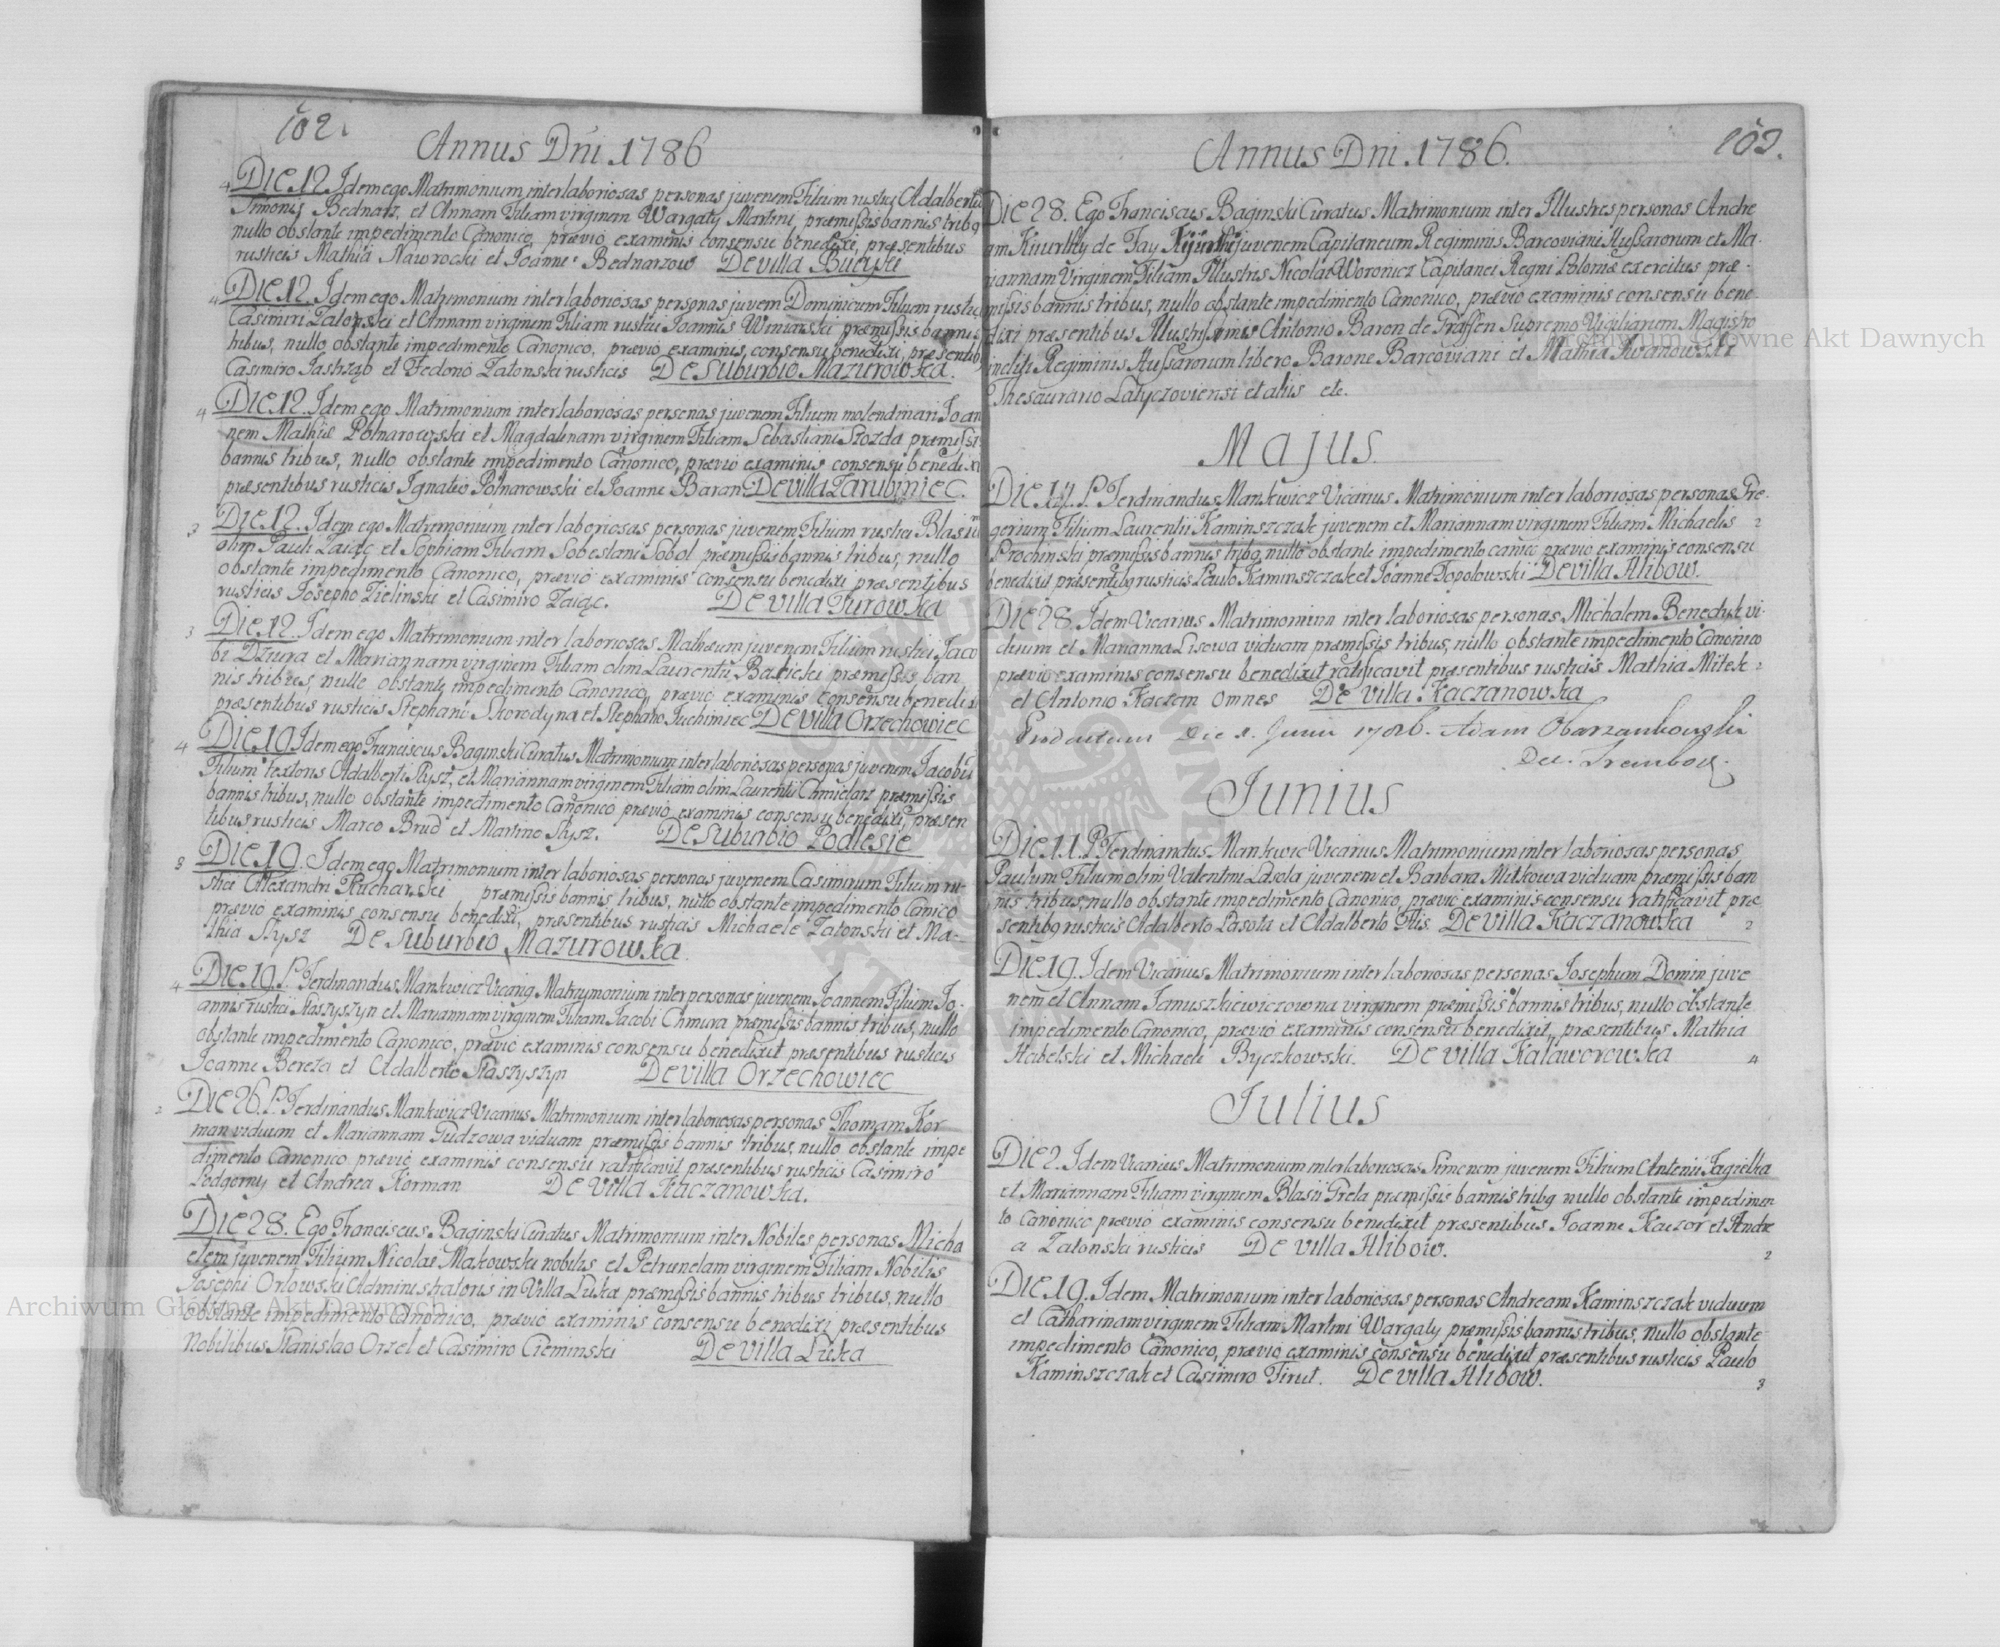 102.
Annus Dni. 1786
4 Die 12. Idem ego Matrimonium inter laboriosas personas juvenem Filium rustici Adalbertū
Simonis Bednarz, et Annam Filiam virginem Wargaty Martini, præmissis bannis tribq
nullo obstante impedimento Canonico, prævio examinis consensu benedixi, præsentibus
rusticis Mathia Nawrocki et Joanne Bednarzow De villa Bucyki
4 Die 12. Idem ego Matrimonium inter laboriosas personas juvem Dominicum Filium rustici
Casimiri Zatonski et Annam virginem Filiam rustici Joannis Winiarski præmissis bannis
tribus, nullo obstante impedimento Canonico, prævio examinis consensu benedixi, præsentibq
Casimiro Jastrząb et Fedono Zatonski rusticis De Suburbio Mazurowka.
4 Die 12. Idem ego Matrimonium inter laboriosas personas juvenem Filium molendinari Joan
nem Mathiæ Polnarowski et Magdalenam virginem Filiam Sebastiani Szozda præmissi
bannis tribus, nullo obstante impedimento Canonico, prævio examinis consensu benedixi
præsentibus rusticis Ignatio Polnarowski et Joanne Baran De villa Zarubiniec.
3 Die 12. Idem ego Matrimonium inter laboriosas personas juvenem Filium rustici Blasiū
olim Pauli Zaiąc et Sophiam Filiam Sobestani Sobol præmissis bannis tribus, nullo
obstante impedimento Canonico, prævio examinis consensu benedixi præsentibus
rusticis Josepho Zielinski et Casimiro Zaiąc. De villa Turowka
3 Die 12. Idem ego Matrimonium inter laboriosas Mathæum juvenem Filium rustici Jaco
bi Dziura et Mariannam virginem Filiam olim Laurentii Basicki præmissis ban
nis tribus, nullo obstante impedimento Canonico, prævio examinis consensu benedixi
præsentibus rusticis Stephano Skorodyna et Stephano Juchimiec De villa Orzechowiec
4 Die 19. Idem ego Franciscus Baginski Curatus Matrimonium inter laboriosas personas juvenem Jacobū
Filium textoris Adalberti Stysz, et Mariannam virginem Filiam olim Laurentii Chmielarz præmissis
bannis tribus, nullo obstante impedimento Canonico prævio examinis consensu benedixi, præsen
tibus rusticis Marco Brud et Martino Stysz. De Suburbio Podlesie
3 Die 19. Idem ego Matrimonium inter laboriosas personas juvenem Casimirum Filium ru
stici Alexandri Kucharski præmissis bannis, tribus, nullo obstante impedimento Canico
prævio examinis consensu benedixi, præsentibus rusticis Michaele Zatonski et Ma-
thia Stysz De Suburbio Mazurowka.
4 Die 19. P. Ferdinandus Mankwicz Vicariq Matrymonium inter personas juvenem Joannem Filium Jo-
annis rustici Staszyszyn et Mariannam virginem Filiam Jacobi Chmura præmissis bannis tribus, nullo
obstante impedimento Canonico, prævio examinis consensu benedixit præsentibus rusticis
Joanne Bereza et Adalberto Staszyszyn De villa Orzechowiec
2 Die 26. P. Ferdinandus Mankwicz Vicarius Matrimonium inter laboriosas personas Thomam Kor
man viduum et Mariannam Gudzowa viduam præmissis bannis tribus, nullo obstante impe
dimento Canonico prævio examinis consensu ratificavit præsentibus rusticis Casimiro
Podgorny et Andrea Korman De villa Kaczanowka.
Die 28. Ego Franciscus Baginski Curatus Matrimonium inter Nobiles personas Micha
elem juvenem Filium Nicolai Makowski nobilis et Petrunelam virginem Filiam Nobilis
Josephi Orłowski Administratoris in Villa Luka præmissis bannis tribus tribus, nullo
obstante impedimento Canonico, prævio examinis consensu benedixi præsentibus
Nobilibus Stanislao Orzel et Casimiro Cieminski De villa Luka
103.
Annus Dni. 1786.
Die 28. Ego Franciscus Baginski Curatus Matrimonium inter Illustres personas Andre
am de Fay juvenem Capitaneum Regiminis Barcoviani Hussarorum et Ma-
riannam Virginem Filiam Illustris Nicolai Woronicz Capitanei Regni Poloniæ exercitus præ-
missis bannis tribus, nullo obstante impedimento Canonico, prævio examinis consensu bene-
dixi præsentibus Illustrissimis Antonio Baron de Graffen Supremo Vigiliarum Magistro
incliti Regiminis Hussarorum libero Barone Barcoviani et Mathia Iwanowski
Thesaurario Latyczoviensi et aliis etc.
Majus.
Die 14. P. Ferdinandus Mankwicz Vicarius Matrimonium inter laboriosas personas Gre-
gorium Filium Laurentii Kaminszczak juvenem et Mariannam virginem Filiam Michaelis 2
Prochinski præmissis bannis tribq nullo obstante impedimento canici prævio examinis consensu
benedixit præsentibq rusticis Paulo Kaminszczak et Joanne Topolowski De villa Hlibow.
Die 28. Idem Vicarius Matrimonium inter laboriosas personas Michalem Benedyk vi-
duum et Marianna Lisowa viduam præmissis tribus, nullo obstante impedimento Canonico
prævio examinis consensu benedixit ratificavit præsentibus rusticis Mathia Mitek 2
et Antonio Kaczem omnes De villa Kaczanowka
Productum Die 1. Junii 1786. Adam Obarzankowski
Dec. Trembow.
Junius
Die 11. P. Ferdinandus Mankwic Vicarius Matrimonium inter laboriosas personas
Paulum Filium olim Valentini Lasola juvenem et Barbara Mitkowa viduam præmissis ban
nis tribus, nullo obstante impedimento Canonico, prævio examinis consensu ratificavit præ
sentibq rusticis Adalberto Lasota et Adalberto Flis. De villa Kaczanowka 2
Die 19. Idem Vicarius Matrimonium inter laboriosas personas Josephum Domin juve
nem et Annam Januszkiewiczowna virginem præmissis bannis tribus, nullo obstante
impedimento Canonico, prævio examinis consensu benedixit, præsentibus Mathia
Habelski et Michaeli Byczkowski. De villa Kalaworowka 4
Julius
Die 2. Idem Vicarius Matrimonium inter laboriosas Simonem juvenem Filium Antonii Jagielka
et Mariannam Filiam virginem Blasii Grela præmissis bannis tribq nullo obstante impedimen-
to Canonico prævio examinis consensu benedixit præsentibus Joanne Kaczor et Andre
a Zatonski rusticis De villa Hlibow. 2
Die 19. Idem Matrimonium inter laboriosas personas Andream Kaminszczak viduum
et Catharinam virginem Filiam Martini Wargaty præmissis bannis tribus, nullo obstante
impedimento Canonico, prævio examinis consensu benedixit præsentibus rusticis Paulo
Kaminszczak et Casimiro Firut. De villa Hlibow. 3
Archiwum Główne Akt Dawnych
Archiwum Główne Akt Dawnych